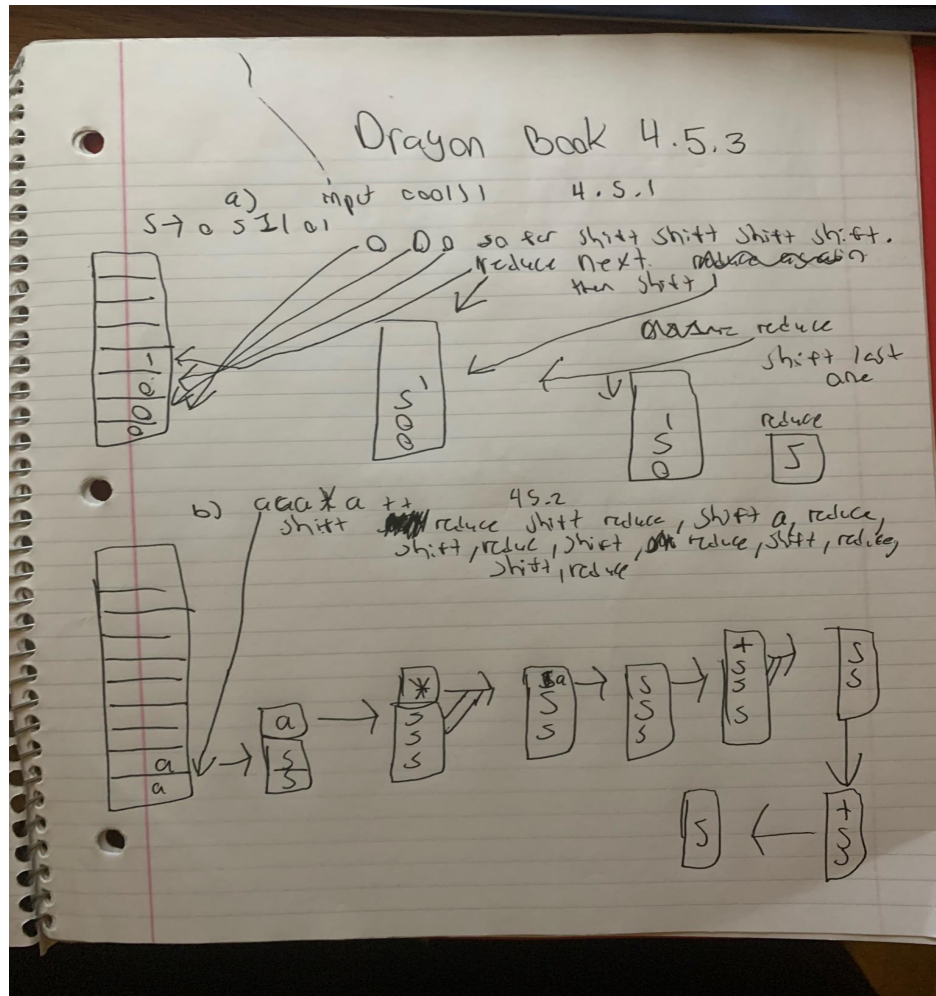 Dragon Book 4.5.3
a) input 000111 4.5.1
S → 0 S 1 | 01
0 0 0 so far shift shift shift shift.
reduce next.
then shift
reduce
shift last
one
1
0
0
0
1
S
0
0
1
S
0
reduce
S
b) aaa*a++ 4.5.2
shift reduce shift reduce, shift a, reduce,
shift, reduc, shift, reduce, shift, reduce,
shift, reduce
a
a
a
S
S
*
S
S
S
a
S
S
S
S
S
+
S
S
S
S
S
+
S
S
S